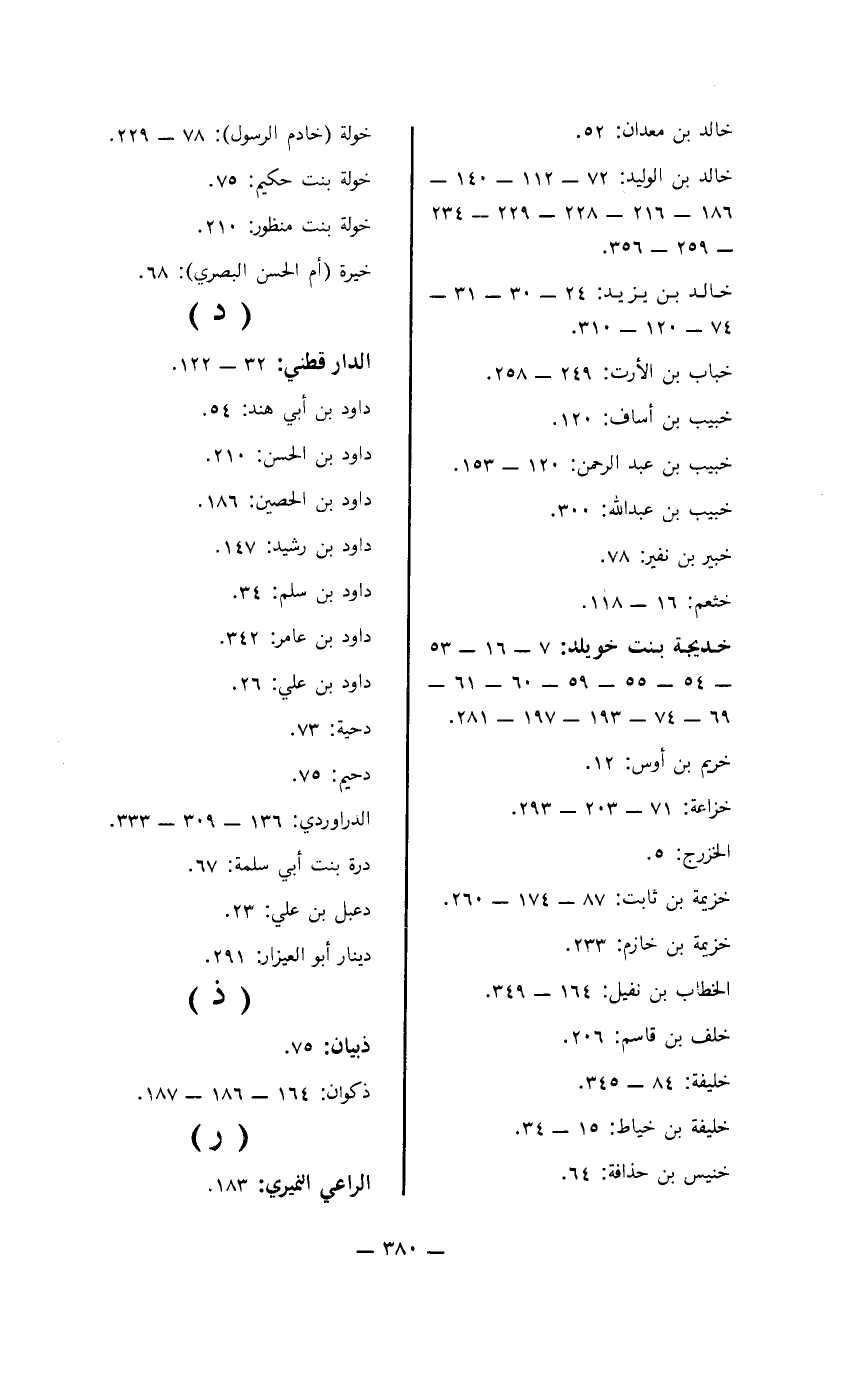 خالد بن معدان: ٥٢.
خالد بن الوليد: ٧٢ — ١١٢ — ١٤٠ —
١٨٦ — ٢١٦ — ٢٢٨ — ٢٢٩ — ٢٣٤
— ٢٥٩ — ٣٥٦.
خالد بن يزيد: ٢٤ — ٣٠ — ٣١ —
٧٤ — ١٢٠ — ٣١٠.
خباب بن الأرت: ٢٤٩ — ٢٥٨.
خبيب بن أساف: ١٢٠.
خبيب بن عبد الرحمن: ١٢٠ — ١٥٣.
خبيب بن عبدالله: ٣٠٠.
خبير بن نفير: ٧٨.
خثعم: ١٦ — ١١٨.
خديجة بنت خويلد: ٧ — ١٦ — ٥٣
— ٥٤ — ٥٥ — ٥٩ — ٦٠ — ٦١ —
٦٩ — ٧٤ — ١٩٣ — ١٩٧ — ٢٨١.
خريم بن أوس: ١٢.
خزاعة: ٧١ — ٢٠٣ — ٢٩٣.
الخزرج: ٥.
خزيمة بن ثابت: ٨٧ — ١٧٤ — ٢٦٠.
خزيمة بن خازم: ٢٣٣.
الخطاب بن نفيل: ١٦٤ — ٣٤٩.
خلف بن قاسم: ٢٠٦.
خليفة: ٨٤ — ٣٤٥.
خليفة بن خياط: ١٥ — ٣٤.
خنيس بن حذافة: ٦٤.
خولة (خادم الرسول): ٧٨ — ٢٢٩.
خولة بنت حكيم: ٧٥.
خولة بنت منظور: ٢١٠.
خيرة (أم الحسن البصري): ٦٨.
( د )
الدار قطني: ٣٢ — ١٢٢.
داود بن أبي هند: ٥٤.
داود بن الحسن: ٢١٠.
داود بن الحصين: ١٨٦.
داود بن رشيد: ١٤٧.
داود بن سلم: ٣٤.
داود بن عامر: ٣٤٢.
داود بن علي: ٢٦.
دحية: ٧٣.
دحيم: ٧٥.
الدراوردي: ١٣٦ — ٣٠٩ — ٣٣٣.
درة بنت أبي سلمة: ٦٧.
دعبل بن علي: ٢٣.
دينار أبو العيزار: ٢٩١.
( ذ )
ذبيان: ٧٥.
ذكوان: ١٦٤ — ١٨٦ — ١٨٧.
( ر )
الراعي النميري: ١٨٣.
— ٣٨٠ —